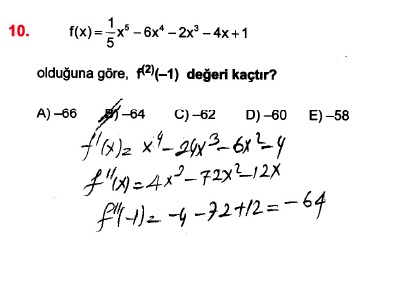 10. f(x)=1/5x⁵−6x⁴−2x³−4x+1
olduğuna göre, f⁽²⁾(−1) değeri kaçtır?
A) −66 B) −64 C) −62 D) −60 E) −58
f'(x)= x⁴−24x³−6x²−4
f''(x)=4x³−72x²−12x
f''(-1)= −4−72+12=−64